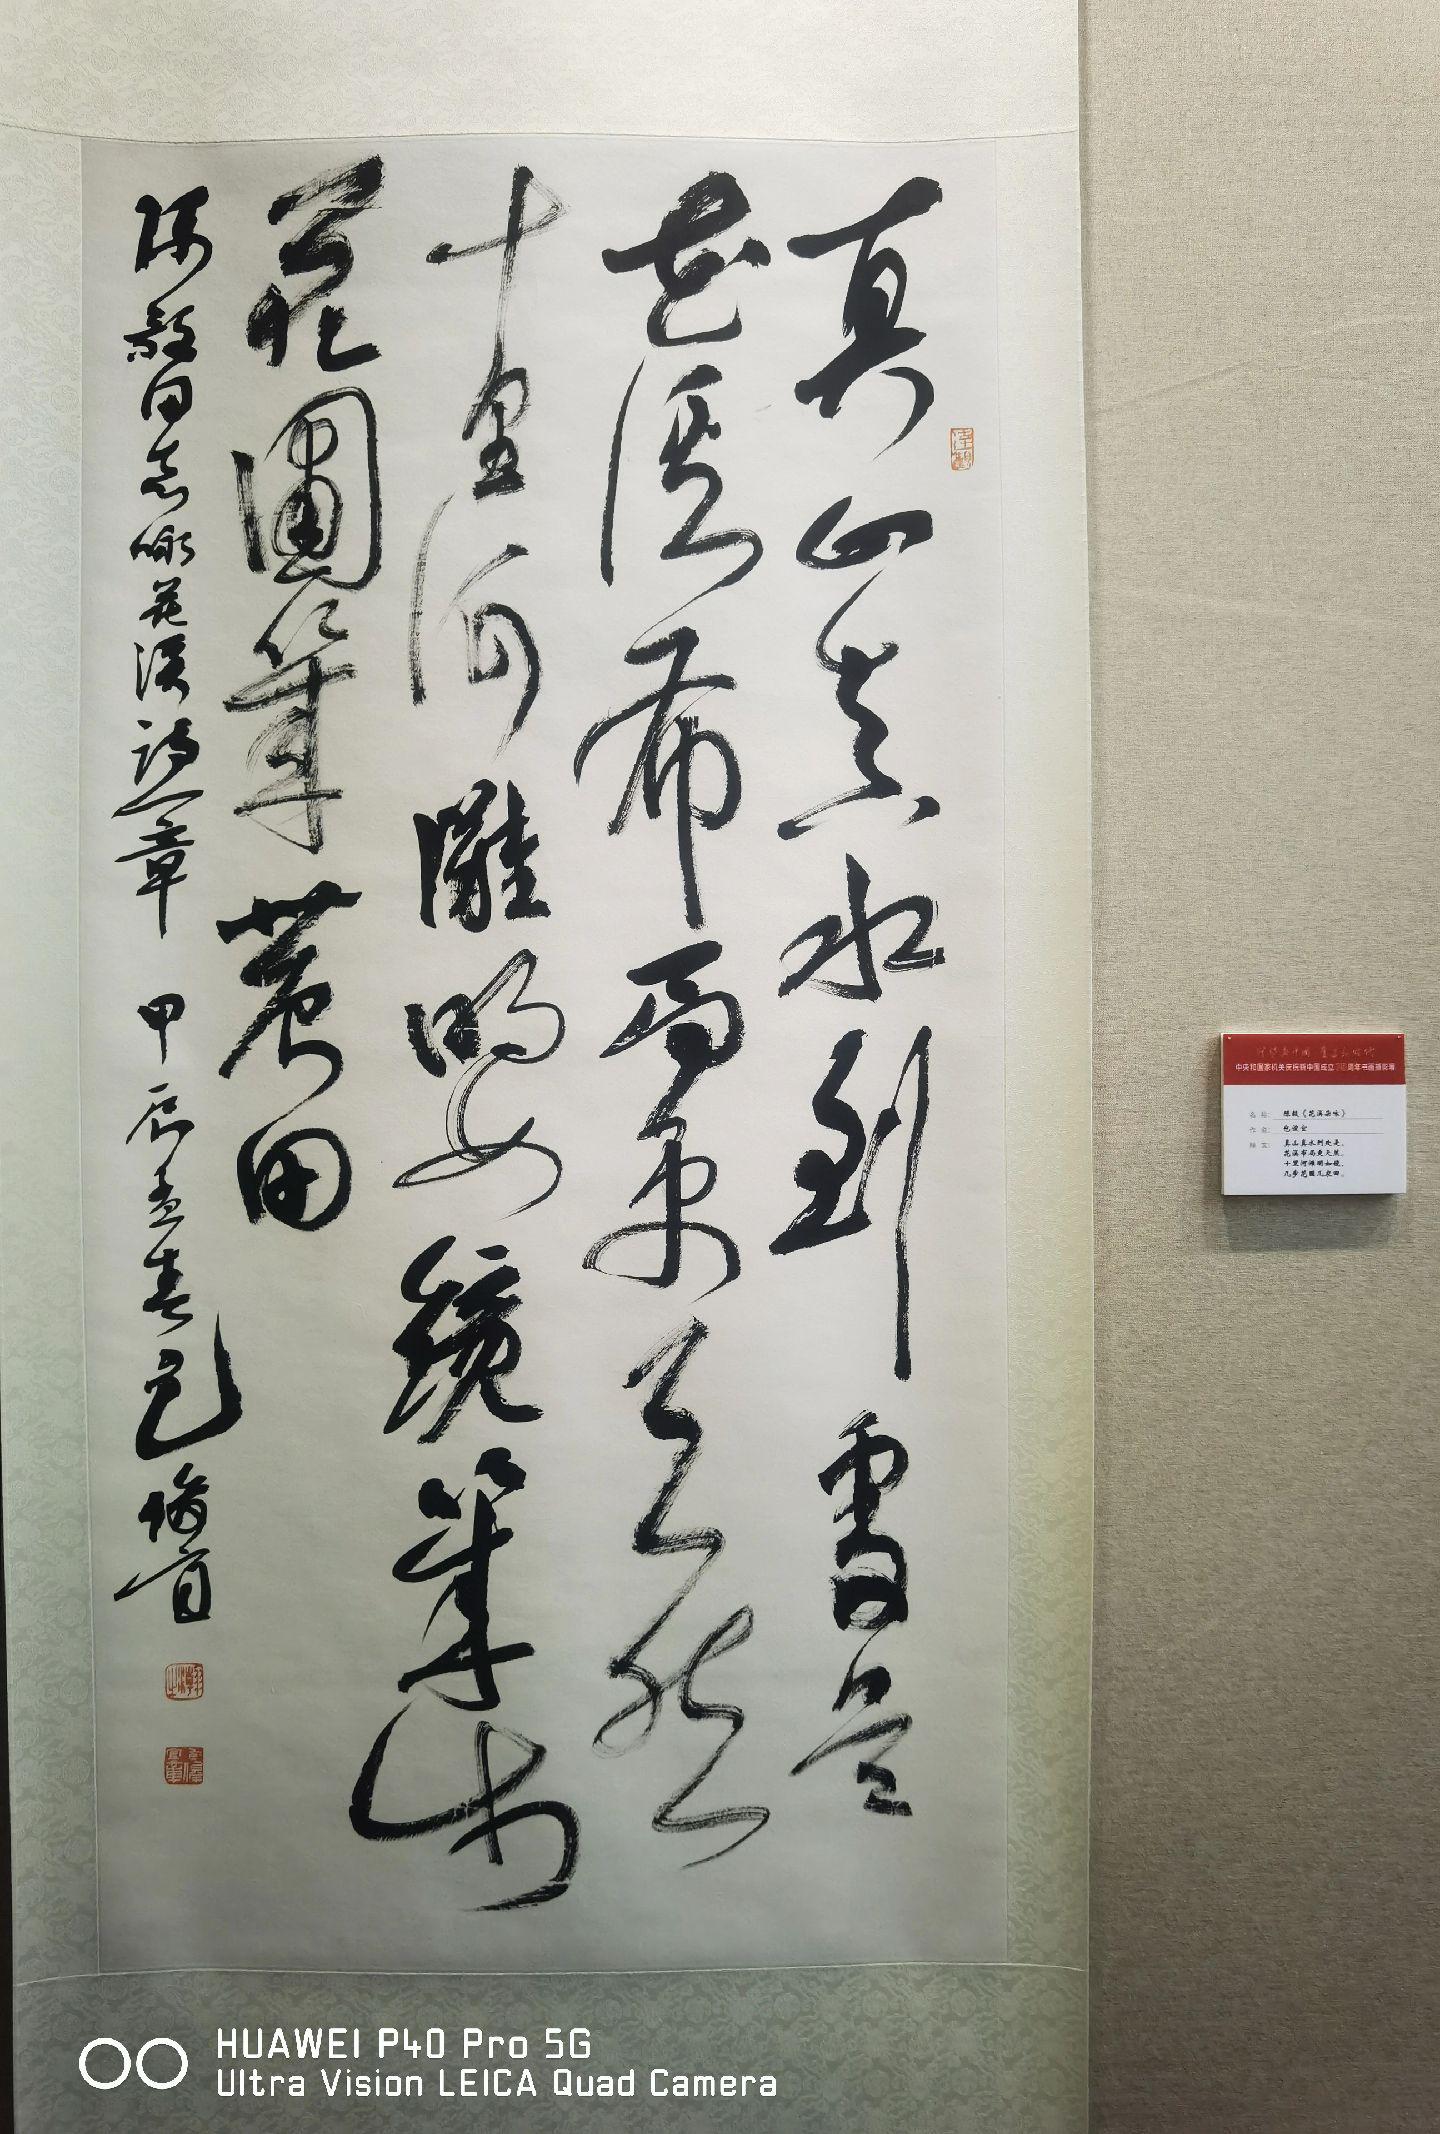 真山真水到處是
花溪布局更天然
十里河灘明如鏡
幾步花圃幾農田
陳毅同志咏花溪詩一章 甲辰孟春 包俊宜
中央和国家机关庆祝新中国成立75周年书画摄影展
名 称: 陈毅《花溪杂咏》
作 者: 包俊宜
释 文: 真山真水到处是，
花溪布局更天然。
十里河滩明如镜，
几步花圃几农田。
HUAWEI P40 Pro 5G
Ultra Vision LEICA Quad Camera